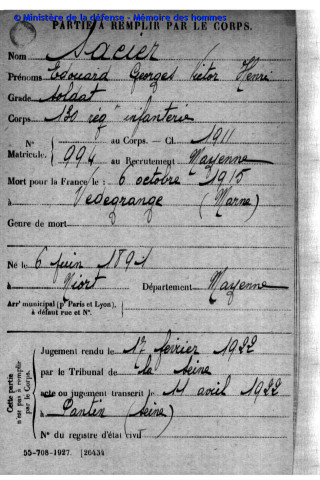 © Ministère de la défense - Mémoire des hommes
PARTIE À REMPLIR PAR LE CORPS.
Nom Sacier
Prénoms Edouard Georges Victor Henri
Grade Soldat
Corps 130 rég^t infanterie
N° Matricule. au Corps. — Cl. 1911
994 au Recrutement Mayenne
Mort pour la France le : 6 octobre 1915
à Vedegrange (Marne)
Genre de mort
Né le 6 juin 1891
à Niort Département Mayenne
Arr^t municipal (p^r Paris et Lyon),
à défaut rue et N°.
Cette partie n'est pas à remplir par le Corps.
Jugement rendu le 17 février 1922
par le Tribunal de la Seine
acte ou jugement transcrit le 11 avril 1922
à Pantin (Seine)
N° du registre d'état civil
55-708-1927. [26434